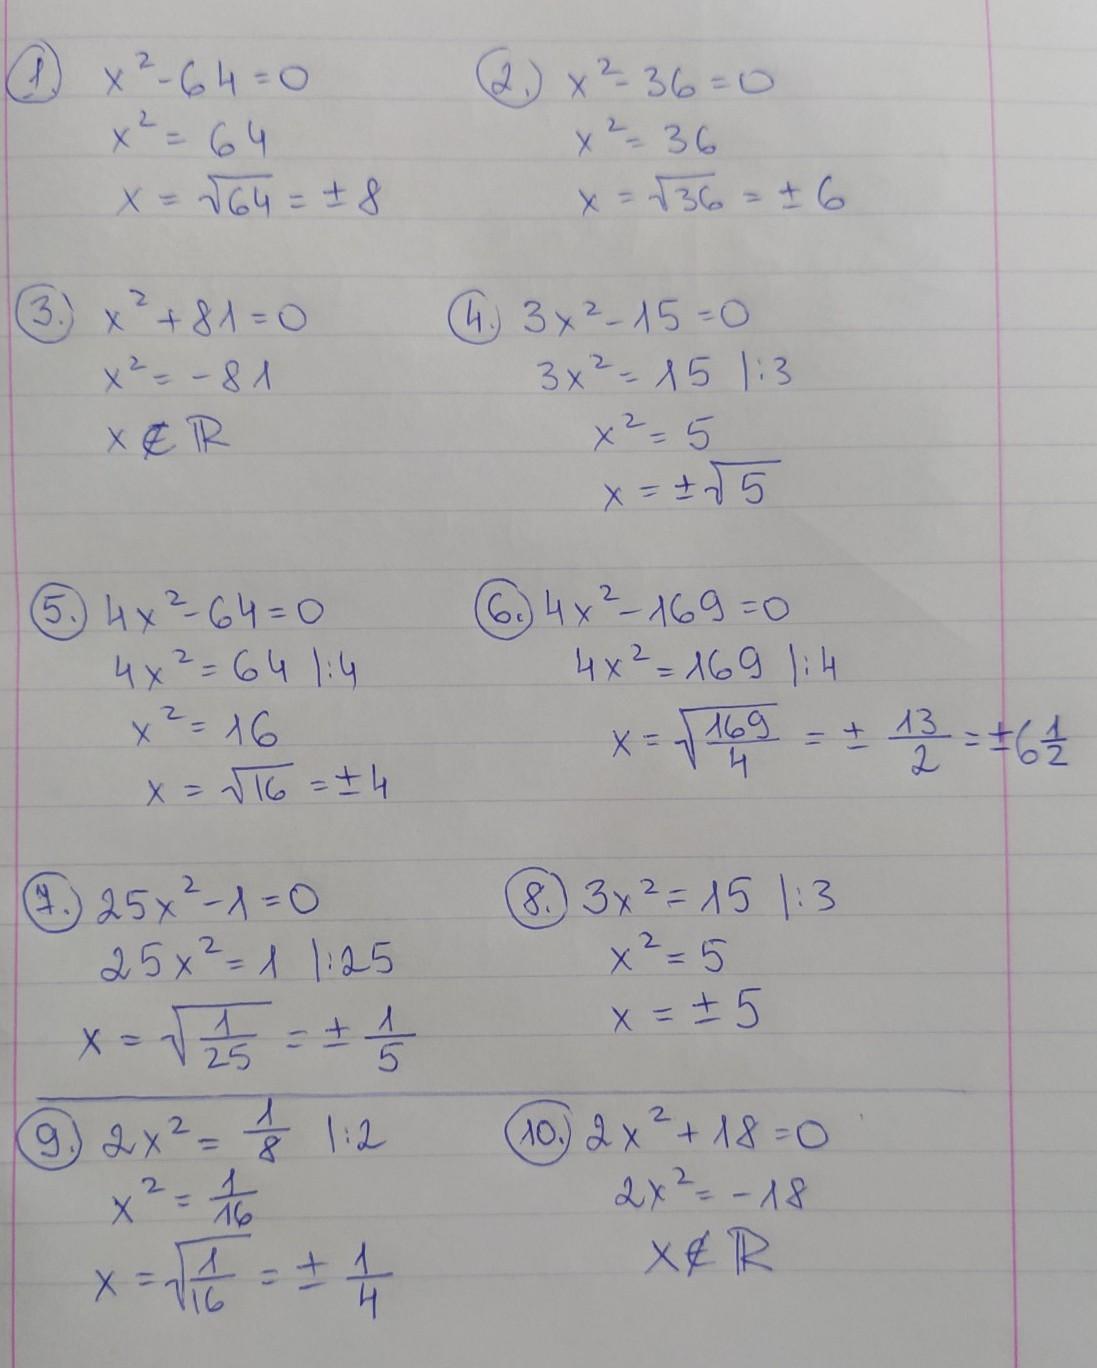 1. x² - 64 = 0
x² = 64
x = √64 = ± 8
2. x² - 36 = 0
x² = 36
x = √36 = ± 6
3. x² + 81 = 0
x² = - 81
x ∉ ℝ
4. 3x² - 15 = 0
3x² = 15 |:3
x² = 5
x = ±√5
5. 4x² - 64 = 0
4x² = 64 |:4
x² = 16
x = √16 = ± 4
6. 4x² - 169 = 0
4x² = 169 |:4
x = √(169/4) = ± 13/2 = ± 6 1/2
7. 25x² - 1 = 0
25x² = 1 |:25
x = √(1/25) = ± 1/5
8. 3x² = 15 |:3
x² = 5
x = ± 5
9. 2x² = 1/8 |:2
x² = 1/16
x = √(1/16) = ± 1/4
10. 2x² + 18 = 0
2x² = - 18
x ∉ ℝ